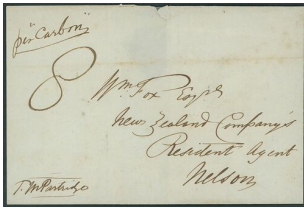 per "Carbon"
8
Wm Fox Esqre
New Zealand Company's
Resident Agent
Nelson
T. M. Partridge